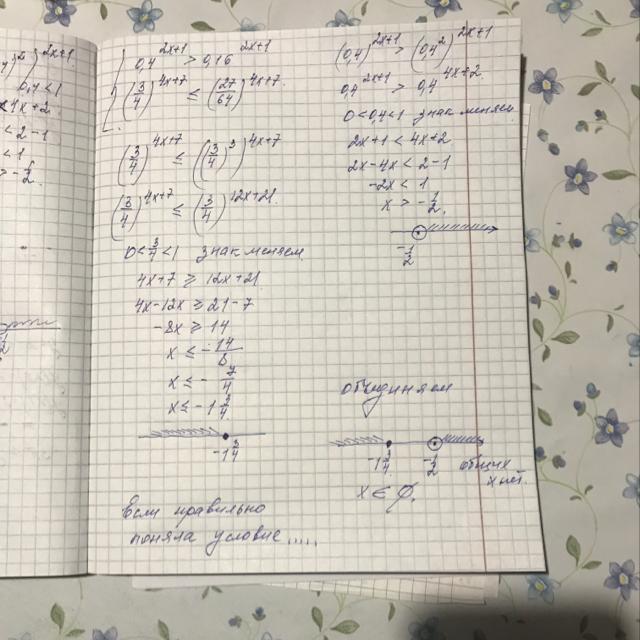 0,4^{2x+1} > 0,16^{2x+1}
(3/4)^{4x+7} ≤ (27/64)^{4x+7}
(3/4)^{4x+7} ≤ ((3/4)^3)^{4x+7}
(3/4)^{4x+7} ≤ (3/4)^{12x+21}
0<3/4<1 знак меняем
4x+7 ≥ 12x+21
4x-12x ≥ 21-7
-8x ≥ 14
x ≤ -14/8
x ≤ -7/4
x ≤ -1 3/4
-1 3/4
Если правильно
поняла условие.....
(0,4)^{2x+1} > (0,4^2)^{2x+1}
0,4^{2x+1} > 0,4^{4x+2}
0<0,4<1 знак меняем
2x+1 < 4x+2
2x-4x < 2-1
-2x < 1
x > -1/2.
-1/2
объединяем
-1 3/4 -1/2 общих
x нет.
x ∈ ∅.